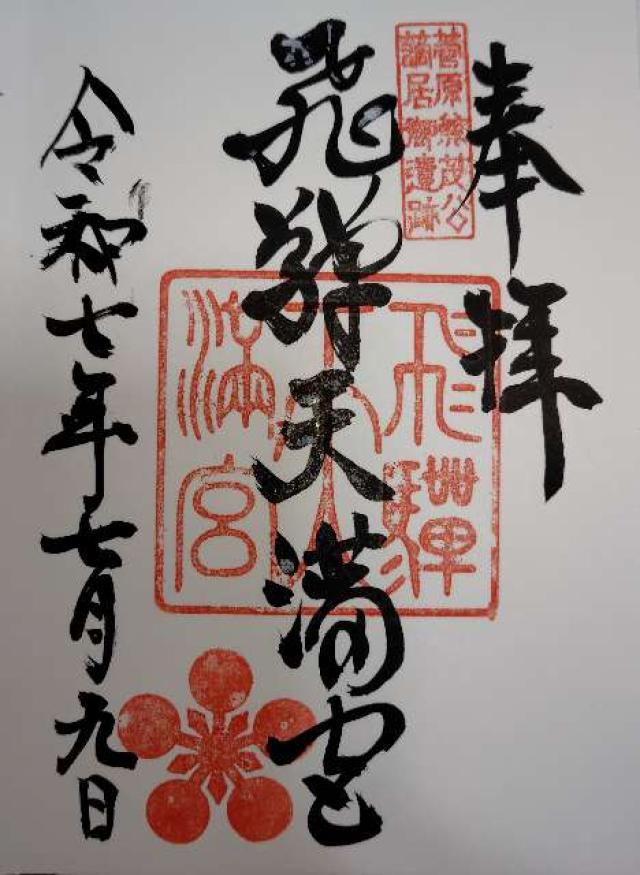 奉拝
菅原兼茂公
謫居御遺跡
飛騨天満宮
飛騨
天
満宮
令和七年七月九日